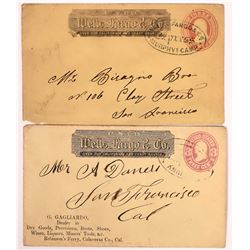 PAID
Wells, Fargo & Co.
MURPHYS CAMP
Messrs. Bisagno Bro
No 106 Clay Street
San Francisco
PAID
Wells, Fargo & Co.
Mr A Daneri
San Francisco
Cal
G. GAGLIARDO,
Dealer in
Dry Goods, Provisions, Boots, Shoes,
Wines, Liquors, Miners' Tools, &c.
Robinson's Ferry, Calaveras Co., Cal.